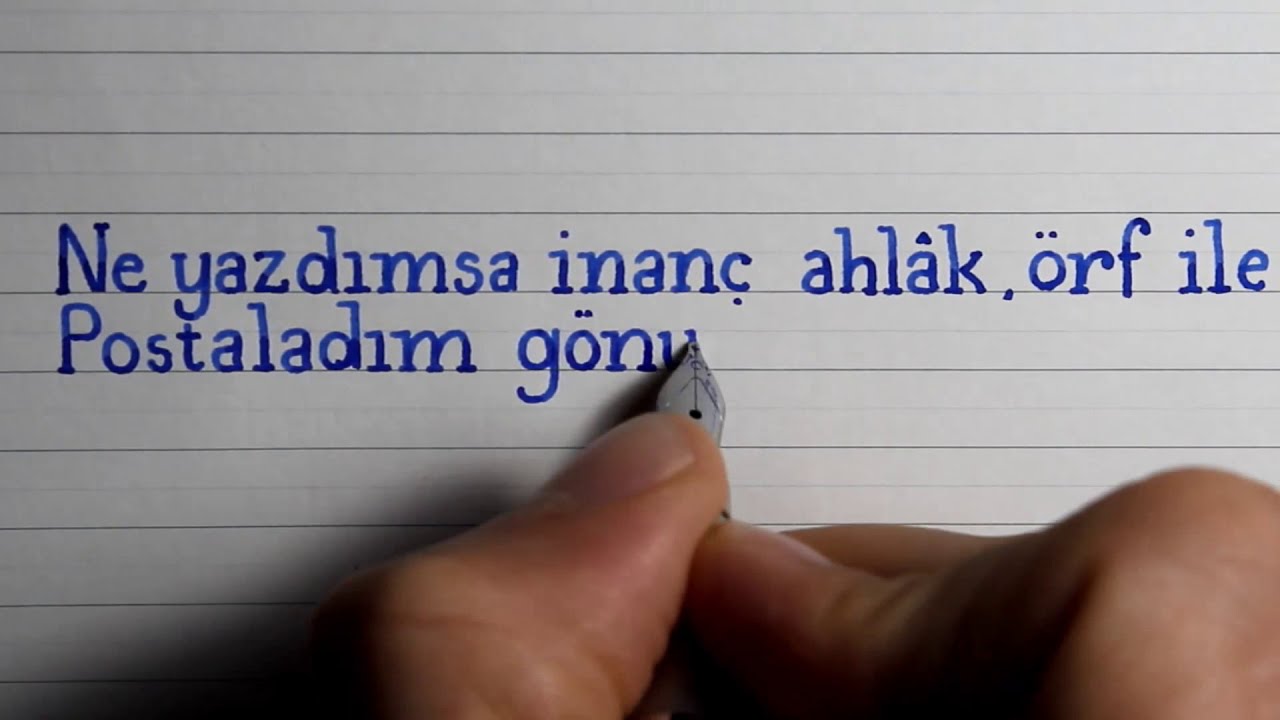 Ne yazdımsa inanç ahlâk, örf ile
Postaladım gönu